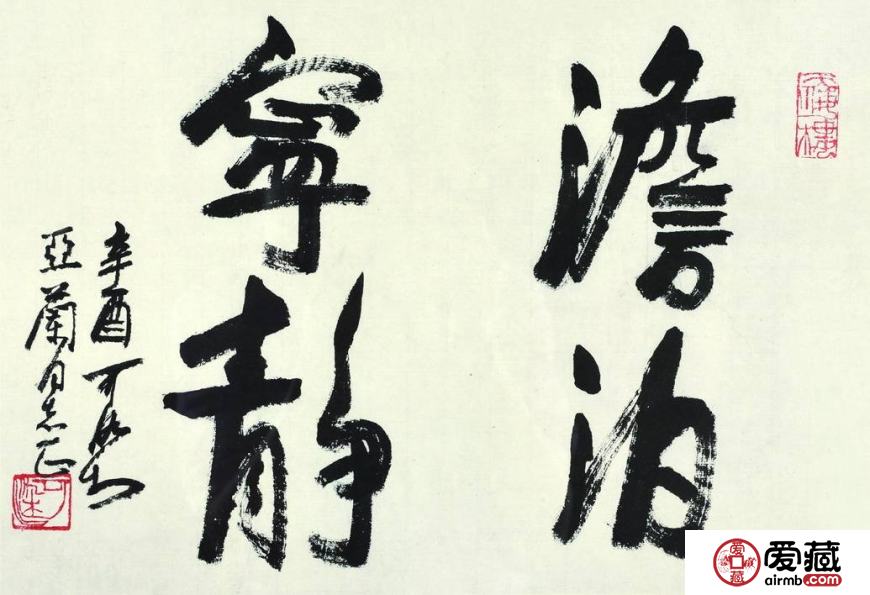 澹泊
寧靜
辛酉 可染书
亞蘭同志正
可染
爱藏
airmb.com